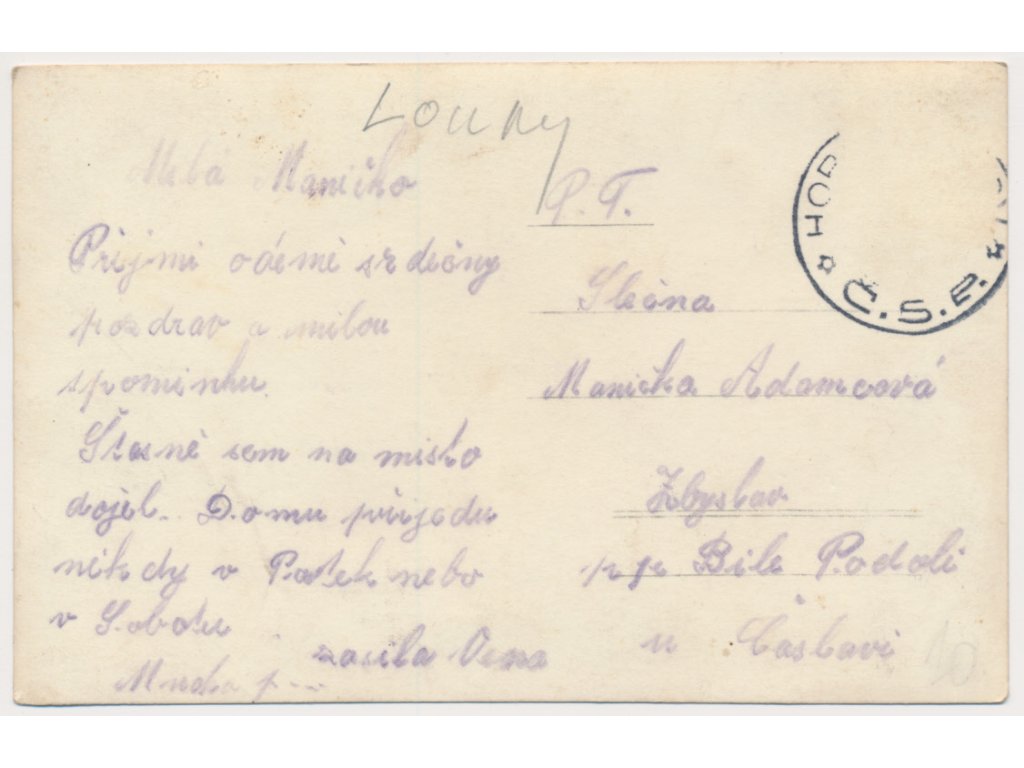 Louny
Milá Maničko
Přijmi odemě srdečny
pozdrav a milou
spominku.
Štasně sem na misto
dojel. Domu přijedu
někdy v Patek nebo
v Sobotu
zasila
P. T.
Slečna
Manička Adamcová
Zbyslav
pp Bile Podoli
u Časlavi
HOR
Č.S.P.
10.